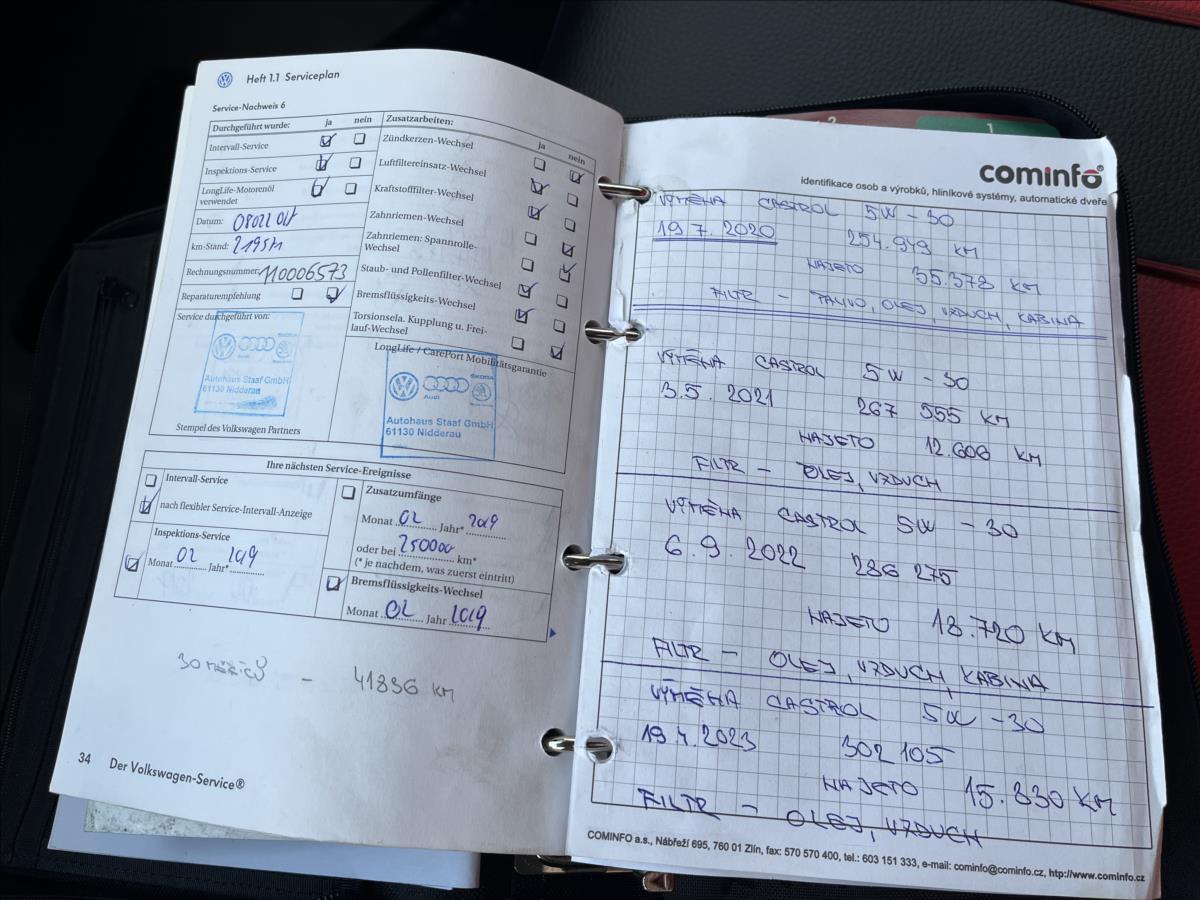 Heft 1.1 Serviceplan
Service-Nachweis 6
Durchgeführt wurde: ja nein
Intervall-Service
Inspektions-Service
LongLife-Motorenöl
verwendet
Datum:
km-Stand:
Rechnungsnummer 110006573
Reparaturempfehlung
Service durchgeführt von:
Audi
Autohaus Staaf GmbH
61130 Nidderau
Stempel des Volkswagen Partners
Zusatzarbeiten: ja nein
Zündkerzen-Wechsel
Luftfiltereinsatz-Wechsel
Kraftstofffilter-Wechsel
Zahnriemen-Wechsel
Zahnriemen: Spannrolle-
Wechsel
Staub- und Pollenfilter-Wechsel
Bremsflüssigkeits-Wechsel
Torsionsela. Kupplung u. Frei-
lauf-Wechsel
LongLife / CarePort Mobilitätsgarantie
Audi
Autohaus Staaf GmbH
61130 Nidderau
Ihre nächsten Service-Ereignisse
Intervall-Service
nach flexibler Service-Intervall-Anzeige
Inspektions-Service
Monat 02 Jahr* 2019
Zusatzumfänge
Monat 02 Jahr* 2019
oder bei 250000 km*
(* je nachdem, was zuerst eintritt)
Bremsflüssigkeits-Wechsel
Monat 02 Jahr 2019
30 MĚSÍCŮ - 41836 KM
34 Der Volkswagen-Service®
2
1
cominfo®
identifikace osob a výrobků, hliníkové systémy, automatické dveře
VÝMĚNA CASTROL 5W - 30
19.7.2020 254.949 KM
NAJETO 35.378 KM
FILTR - PALIVO, OLEJ, VZDUCH, KABINA
VÝMĚNA CASTROL 5W - 30
3.5.2021 267 555 KM
NAJETO 12.606 KM
FILTR - OLEJ, VZDUCH
VÝMĚNA CASTROL 5W - 30
6.9.2022 286 275
NAJETO 18.720 KM
FILTR - OLEJ, VZDUCH, KABINA
VÝMĚNA CASTROL 5W - 30
19.4.2023 302 105
NAJETO 15.830 KM
FILTR - OLEJ, VZDUCH
COMINFO a.s., Nábřeží 695, 760 01 Zlín, fax: 570 570 400, tel.: 603 151 333, e-mail: cominfo@cominfo.cz, http://www.cominfo.cz